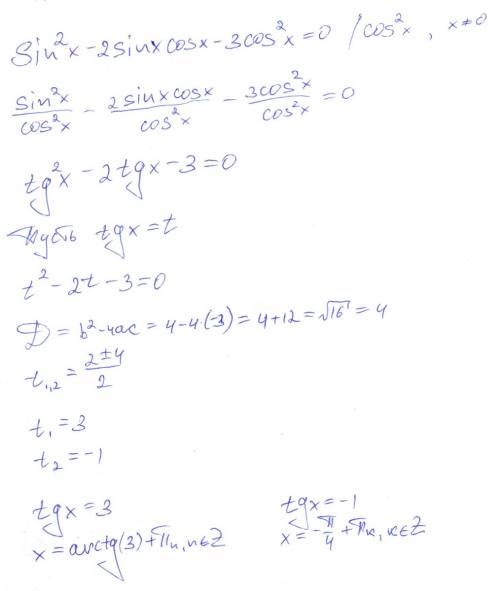 Sin²x - 2sinx cosx - 3cos²x = 0 /cos²x, x≠0
sin²x/cos²x - 2sinxcosx/cos²x - 3cos²x/cos²x = 0
tg²x - 2tgx - 3 = 0
Пусть tgx = t
t² - 2t - 3 = 0
D = b² - 4ac = 4 - 4·(-3) = 4 + 12 = √16 = 4
t₁,₂ = (2±4)/2
t₁ = 3
t₂ = -1
tgx = 3 tgx = -1
x = arctg(3) + πn, n∈Z x = -π/4 + πk, k∈Z